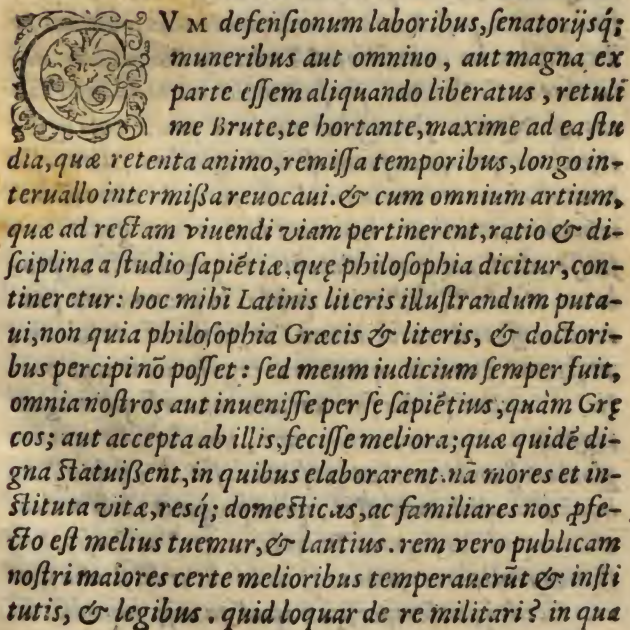 CVM defenſionum laboribus, ſenatorijsq́;
muneribus aut omnino, aut magna ex
parte eſſem aliquando liberatus, retuli
me Brute, te hortante, maxime ad ea ſtu
dia, quæ retenta animo, remiſſa temporibus, longo in-
teruallo intermißa reuocaui. & cum omnium artium,
quæ ad rectam viuendi viam pertinerent, ratio & di-
ſciplina a ſtudio ſapiẽtiæ, quę philoſophia dicitur, con-
tineretur: hoc mihi Latinis literis illuſtrandum puta-
ui, non quia philoſophia Græcis & literis, & doctori-
bus percipi nõ poſſet: ſed meum iudicium ſemper fuit,
omnia noſtros aut inueniſſe per ſe ſapiẽtius, quàm Grę
cos; aut accepta ab illis, feciſſe meliora; quæ quidẽ di-
gna ſtatuißent, in quibus elaborarent. nã mores et in-
ſtituta vitæ, resq́; domeſticas, ac familiares nos ꝓfe-
cto eſt melius tuemur, & lautius. rem vero publicam
noſtri maiores certe melioribus temperauerũt & inſti
tutis, & legibus. quid loquar de re militari? in qua